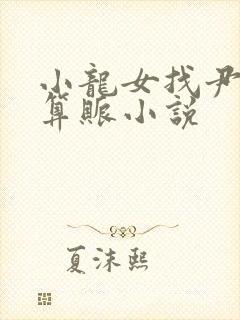 小龍女找尹
算賬小說
夏沫熙